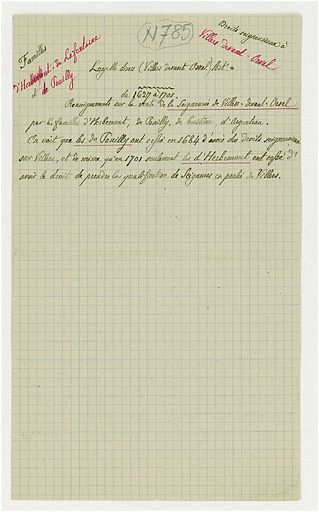 N785
Familles
d'Herbemont - de Lafontaine
et de Pouilly
Droits seigneuriaux à
Villers devant - Orval
Layette donc (Villers devant Orval) Art. 4
de 1627 à 1701.
Renseignements sur la de la Seigneurie de Villers - devant - Orval
par les familles d'Herbemont, de Pouilly, de d'Argenteau.
On voit que les de Pouilly ont cessé en 1684 d'avoir des droits seigneuriaux
sur Villers, et de même qu'en 1701 seulement les d'Herbemont ont cessé d'
avoir le droit de prendre la qualification de Seigneurs en partie de Villers.